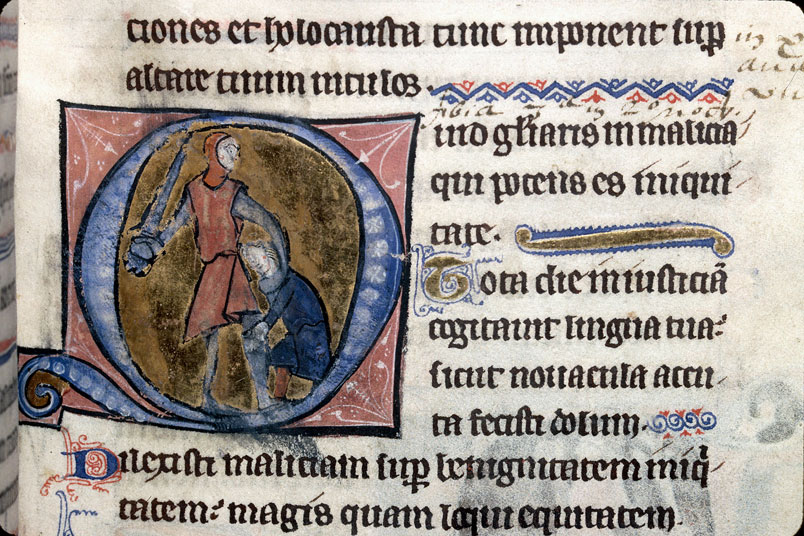 ciones et holocausta tunc imponent sup̄
altare tuum uitulos.
Quid gl̄iaris in malicia
qui potens es iniqui
tate.
Tota die iniusticiā
cogitauit lingua tua:
sicut nouacula accu
ta fecisti dolum.
Dilexisti maliciam sup̄ benignitatem iniq̄
tatem: magis quam loqui equitatem.